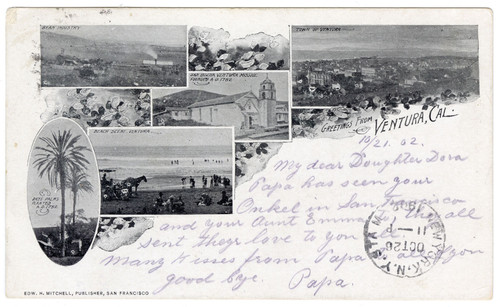 BEET INDUSTRY.
SAN BUENA VENTURA MISSION.
FOUNDED A.D. 1782
TOWN OF VENTURA
BEACH SCENE, VENTURA.
DATE PALMS
PLANTED
A.D. 1790
GREETINGS FROM
VENTURA, CAL.
10/21. 02.
My dear Doughter Dora
Papa has seen your
Onkel in San Francisco
and your Aunt Emma they all
sent there love to you
Many Kisses from Papa to all of you
good bye. Papa.
NEW YORK, N.Y. STA
OCT 26
11
EDW. H. MITCHELL, PUBLISHER, SAN FRANCISCO